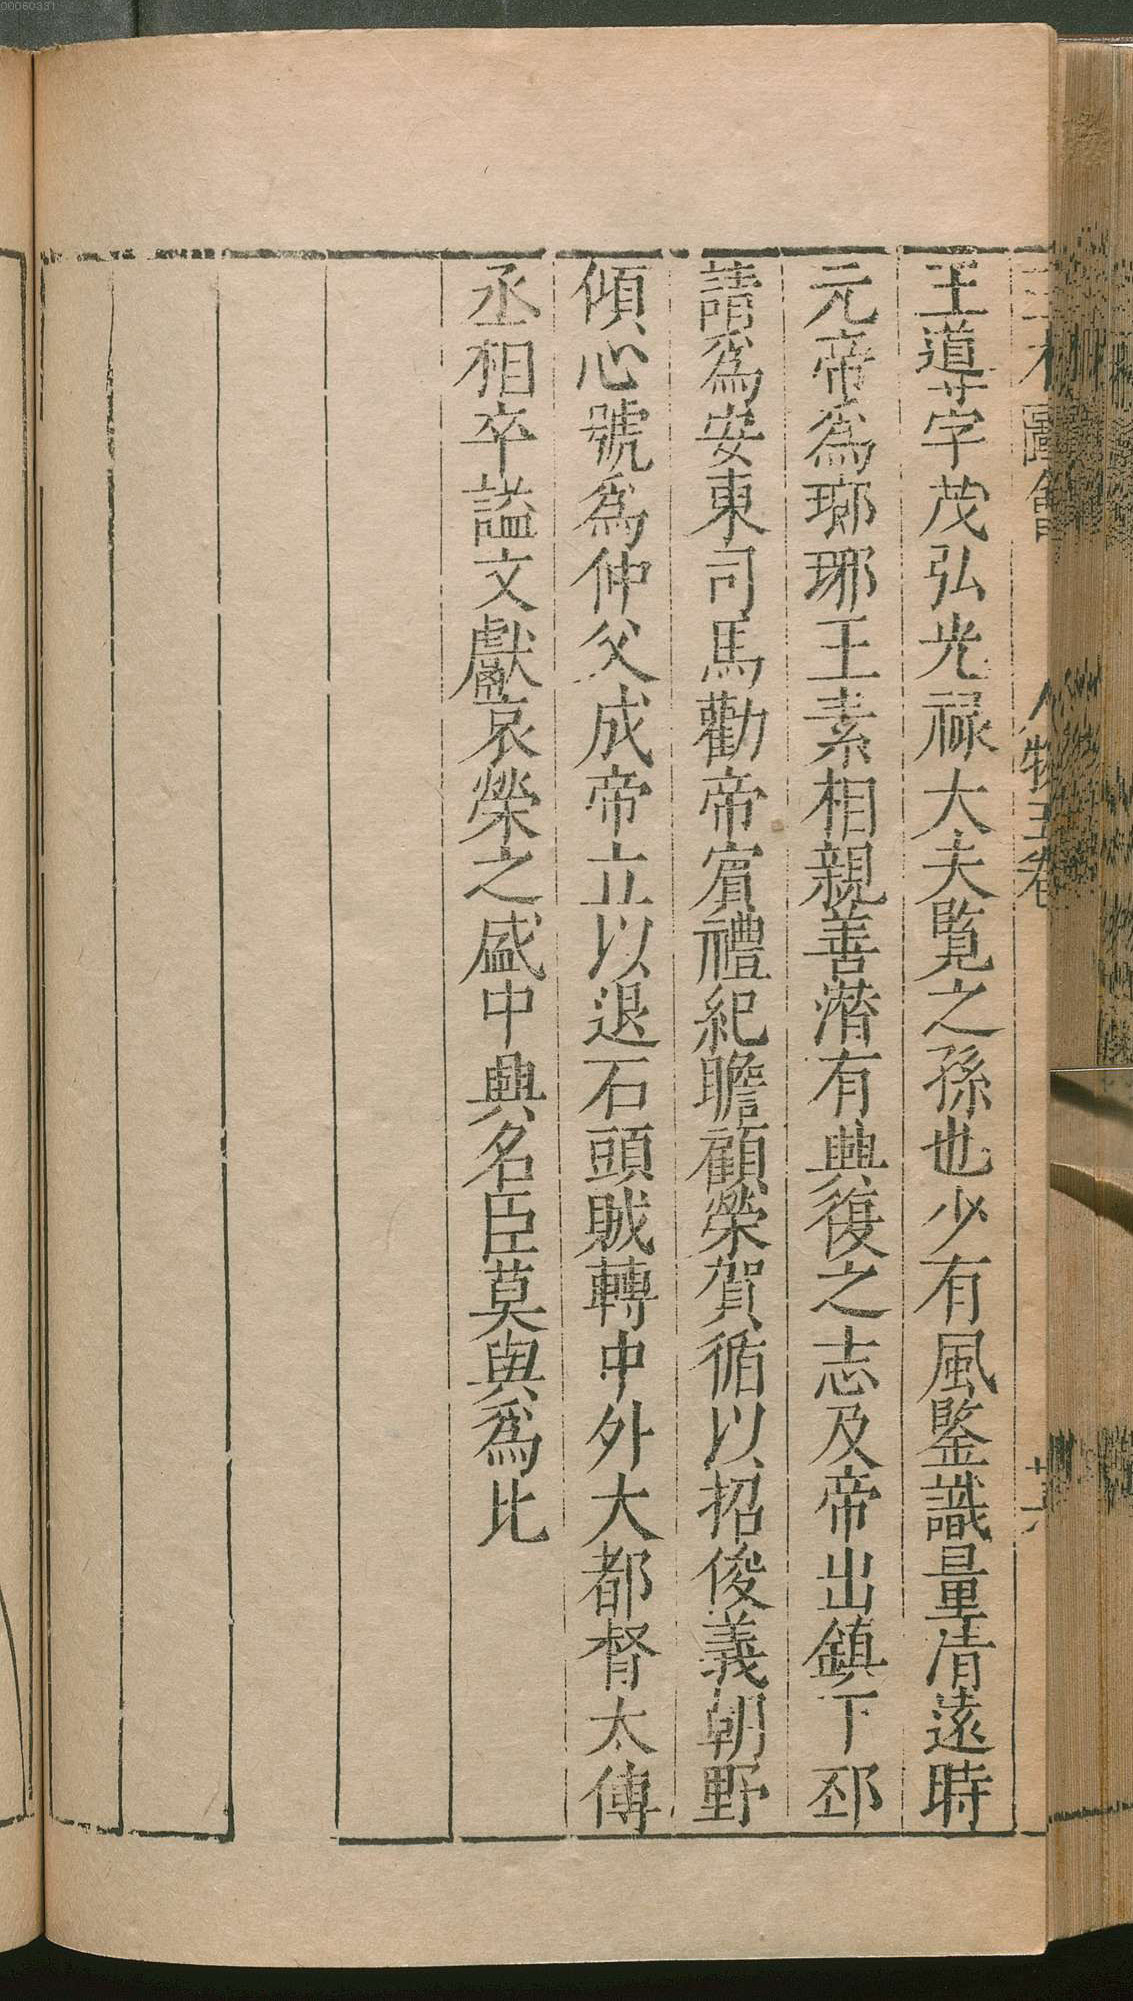 00060331
三才圖會 人物五卷 廿六
王導字茂弘光祿大夫覧之孫也少有風鍳識量清遠時
元帝爲瑯琊王素相親善潛有興復之志及帝出鎮下邳
請爲安東司馬勸帝賓禮紀瞻顧榮賀循以招俊義朝野
傾心號爲仲父成帝立以退石頭賊轉中外大都督太傅
丞相卒謚文獻哀榮之盛中興名臣莫與爲比